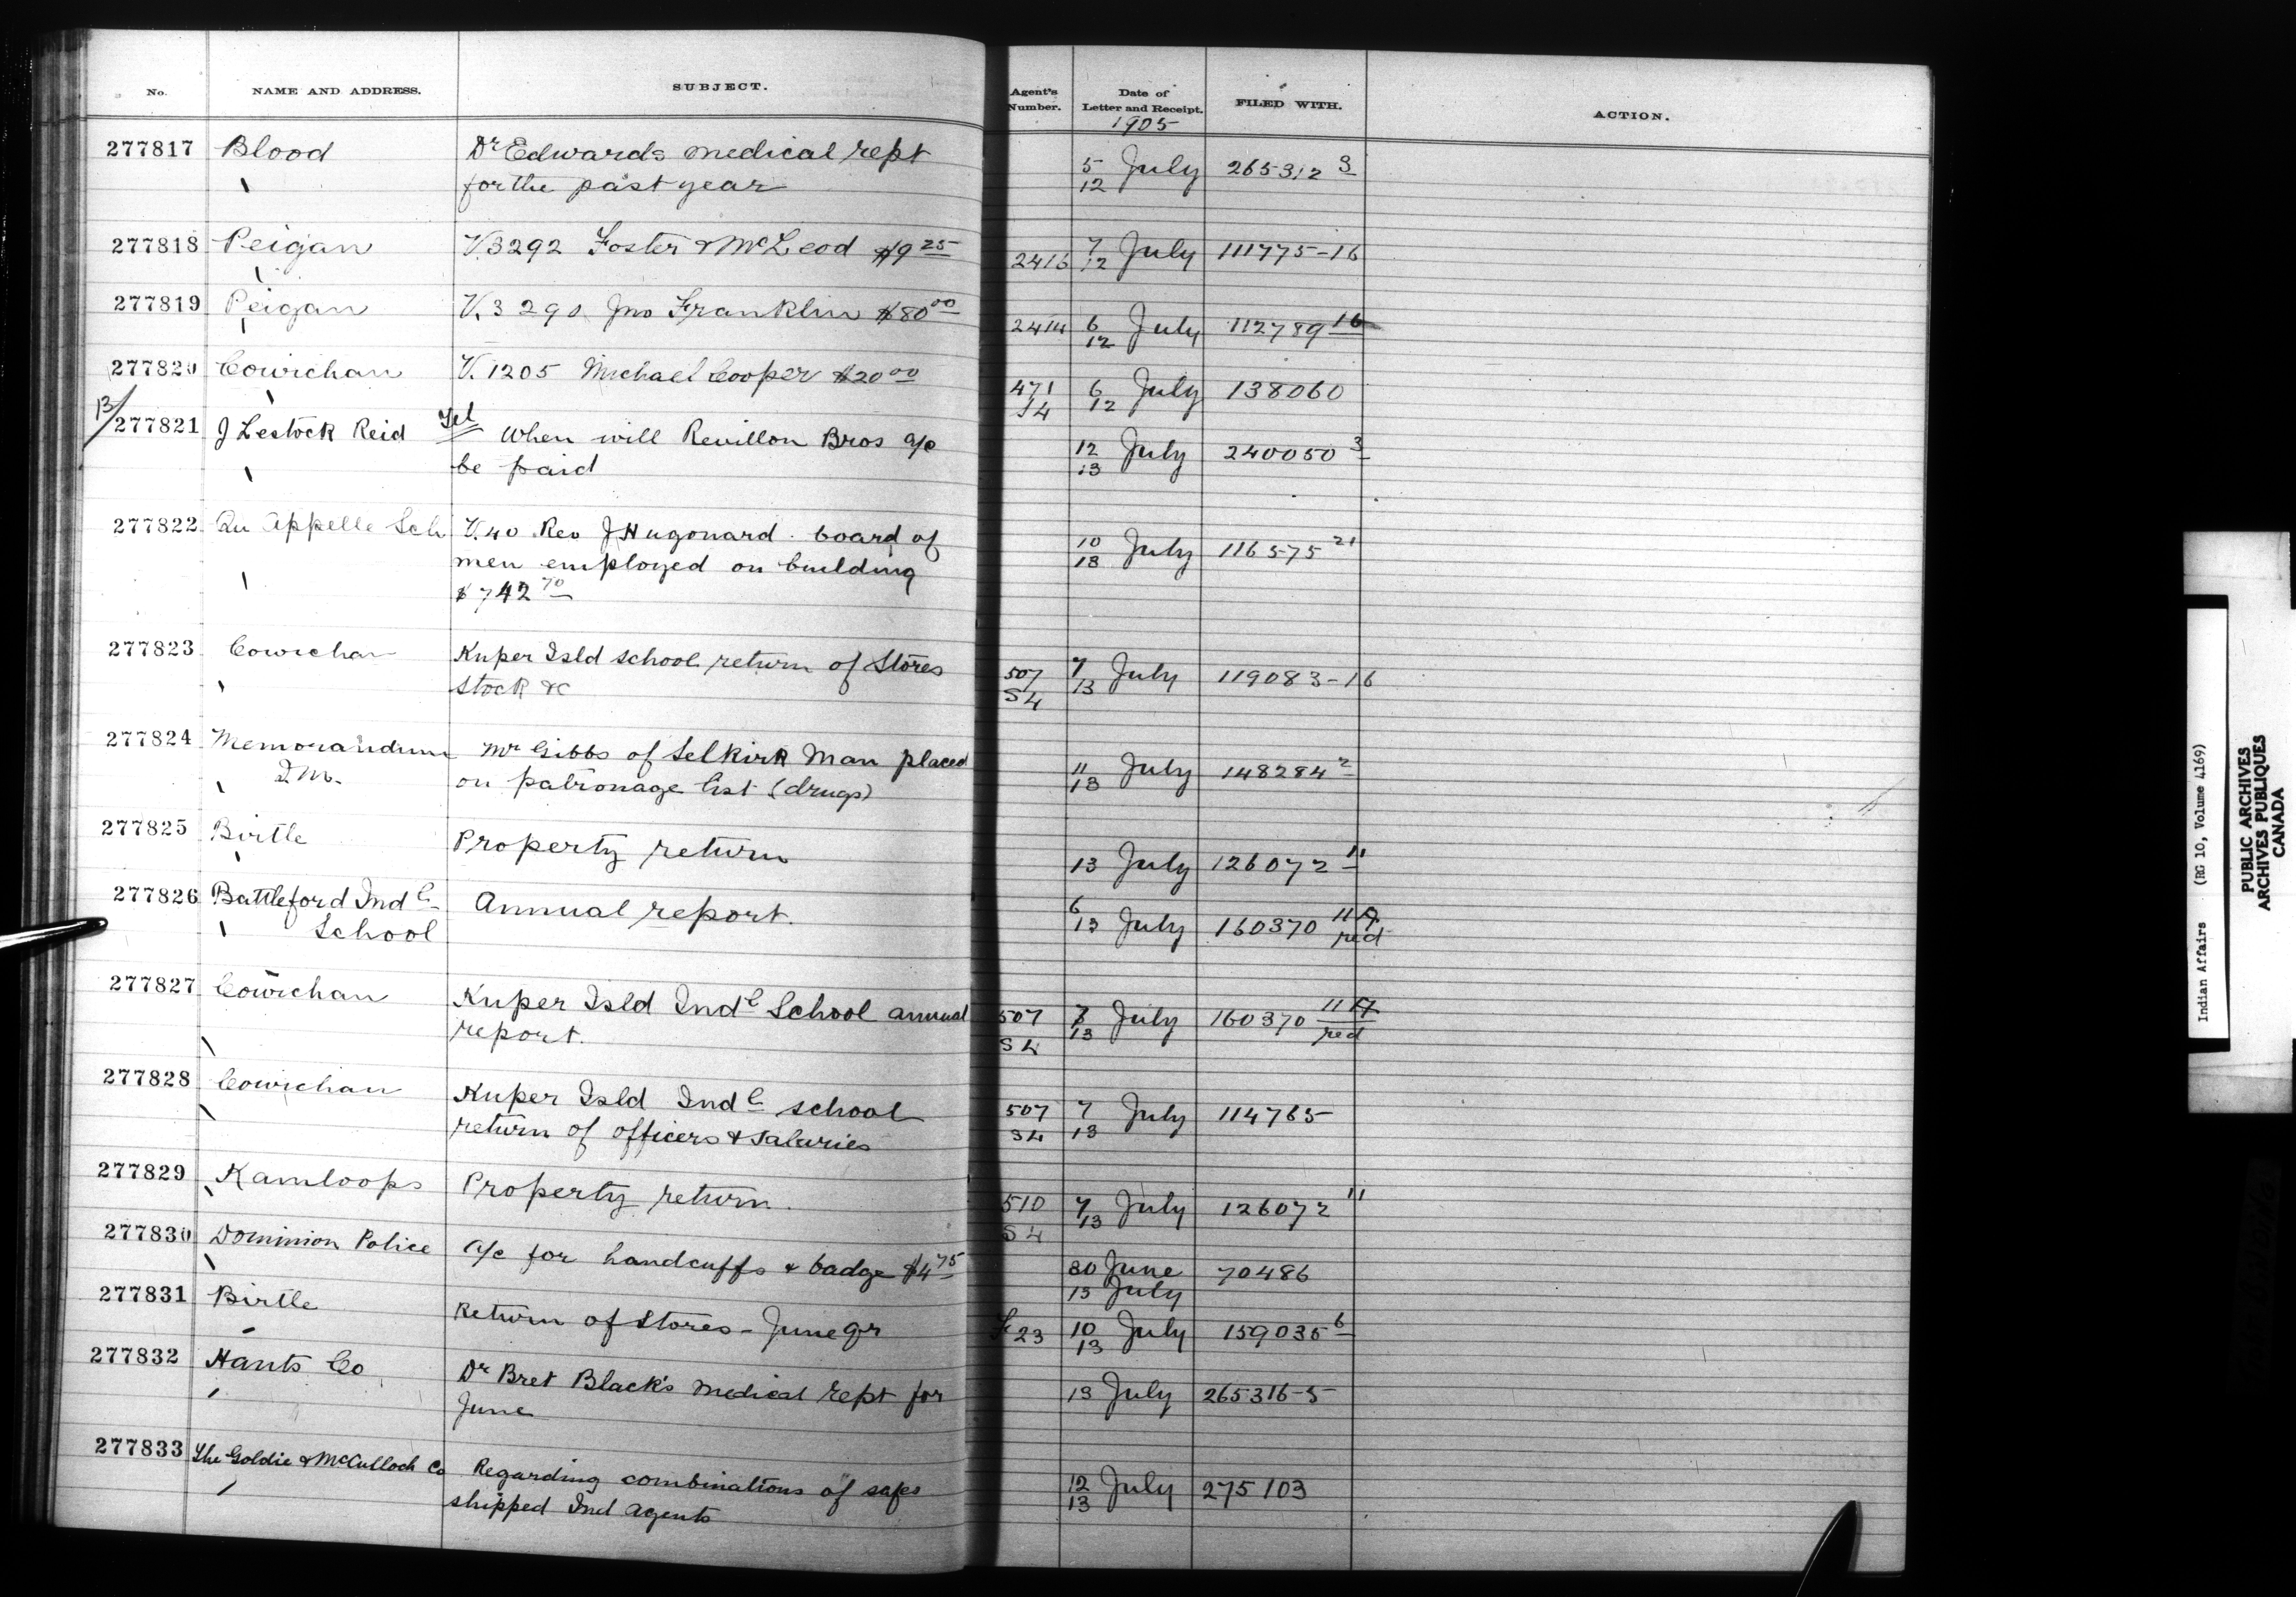 No. NAME AND ADDRESS. SUBJECT. Agent's Number. Date of Letter and Receipt. FILED WITH. ACTION.
1905
277817 Blood Dr Edwards medical rept 5 July 265312 3
for the past year 12
277818 Peigan V.3292 Foster & McLeod $9 25 2416 7 July 111775-16
12
277819 Peigan V.3290 Jno Franklin $80 00 2414 6 July 112789 16
12
277820 Cowichan V.1205 Michael Cooper $20 00 471 6 July 138060
S4 12
13/ 277821 J Lestock Reid Tel When will Revillon Bros a/c 12 July 240050 3
be paid 13
277822 Qu Appelle Sch V.40 Rev J Hugonard. board of 10 July 116575 21
men employed on building 13
$742 70
277823 Cowichan Kuper Isld school return of Stores 507 7 July 119083-16
Stock &c S4 13
277824 Memorandum Mr Gibbs of Selkirk Man placed 11 July 148284 2
on patronage list (drugs) 13
277825 Birtle Property return 13 July 126072 11
277826 Battleford Ind l Annual report. 6 July 160370 11 A
School 13 red
277827 Cowichan Kuper Isld Ind l School annual 507 7 July 160370 11 A
report. S4 13 red
277828 Cowichan Kuper Isld Ind l school 507 7 July 114765
return of officers & salaries S4 13
277829 Kamloops Property return. 510 7 July 126072 11
S4 13
277830 Dominion Police a/c for handcuffs & badge $4 75 30 June 70486
13 July
277831 Birtle Return of Stores - June qr 23 10 July 159035 6
13
277832 Hants Co Dr Bret Black's medical rept for 13 July 265316-5
June
277833 The Goldie & McCulloch Co Regarding combinations of safes 12 July 275103
shipped Ind Agents 13
Indian Affairs (RG 10, Volume 4169)
PUBLIC ARCHIVES
ARCHIVES PUBLIQUES
CANADA